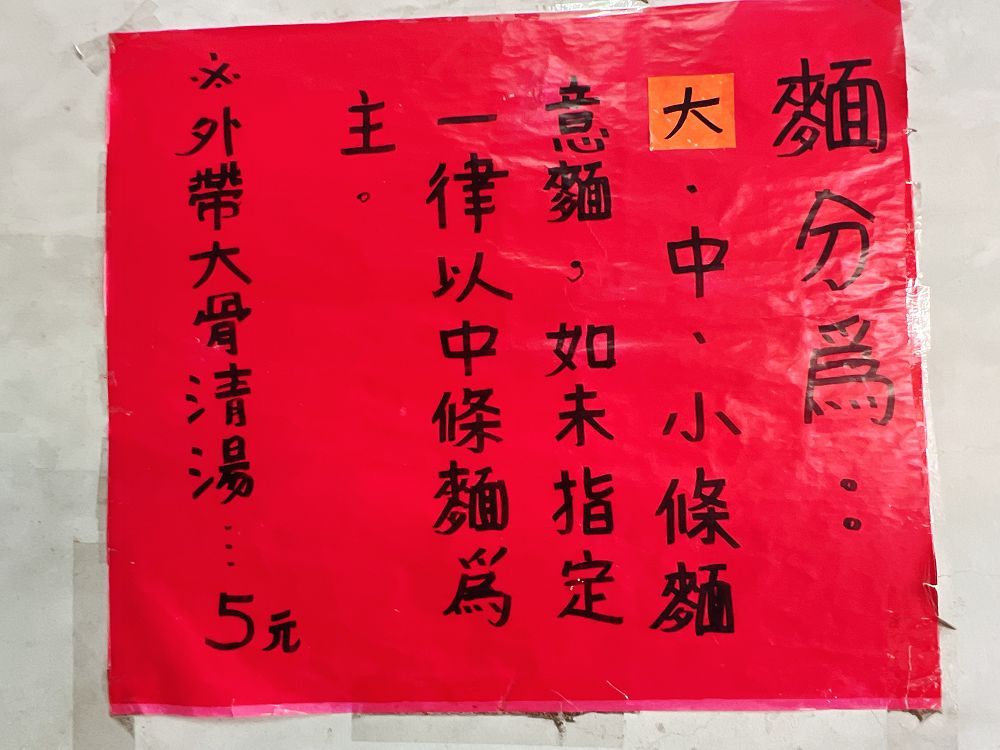 麵分爲：
大．中、小條麵
意麵，如未指定
一律以中條麵爲
主。
※外帶大骨清湯…5元